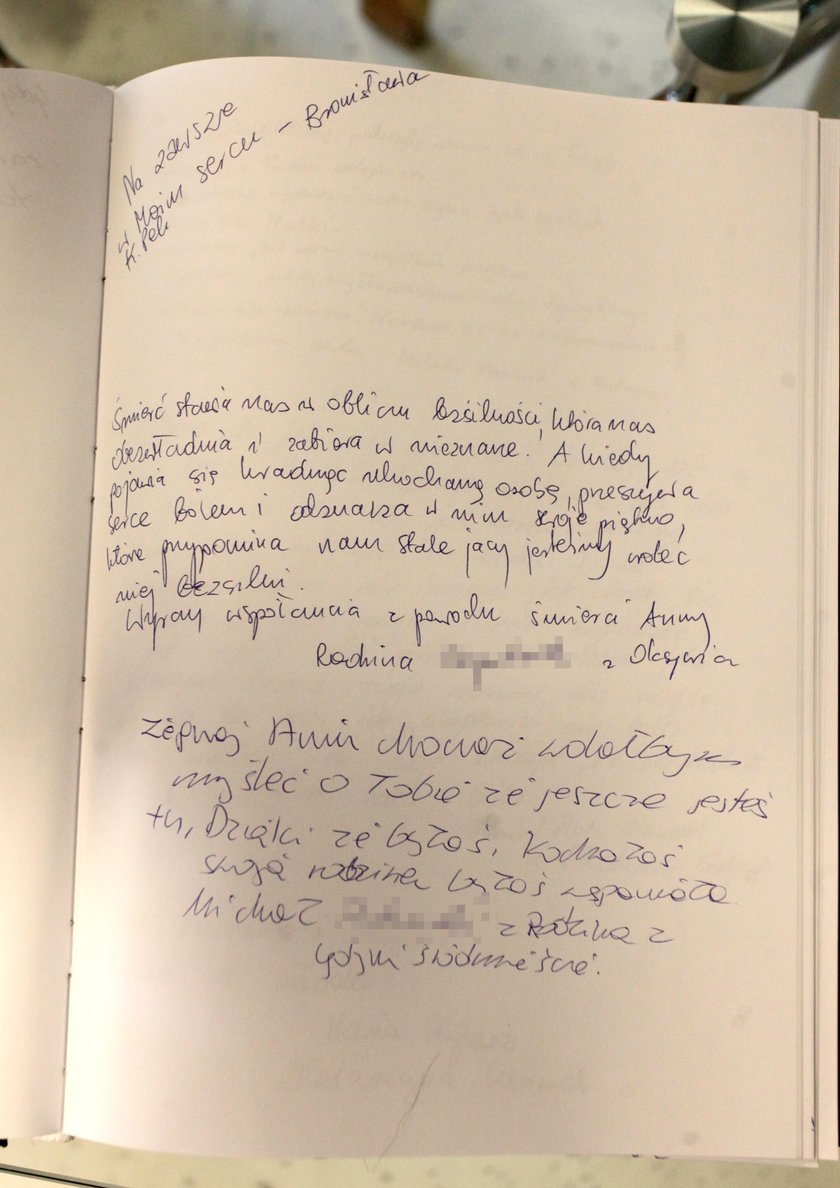 Na zawsze
w Moim sercu - Bronisława
K.
Śmierć stawia nas w obliczu bezsilności, która nas
obezwładnia i zabiera w nieznane. A kiedy
pojawia się kradnąc ukochaną osobę, przeszywa
serce bólem i odznacza w nim swoje piętno,
które przypomina nam stale jacy jesteśmy wobec
niej bezsilni.
Wyrazy współczucia z powodu śmierci Anny
Rodzina z Oksywia
Żegnaj Aniu chociaż wolałbym
myśleć o Tobie że jeszcze jesteś
tu, Dzięki że byłaś, Kochałaś
swoją rodzinę byłaś wspaniała
Michał z Rodziną z
Gdyni Śródmieście.